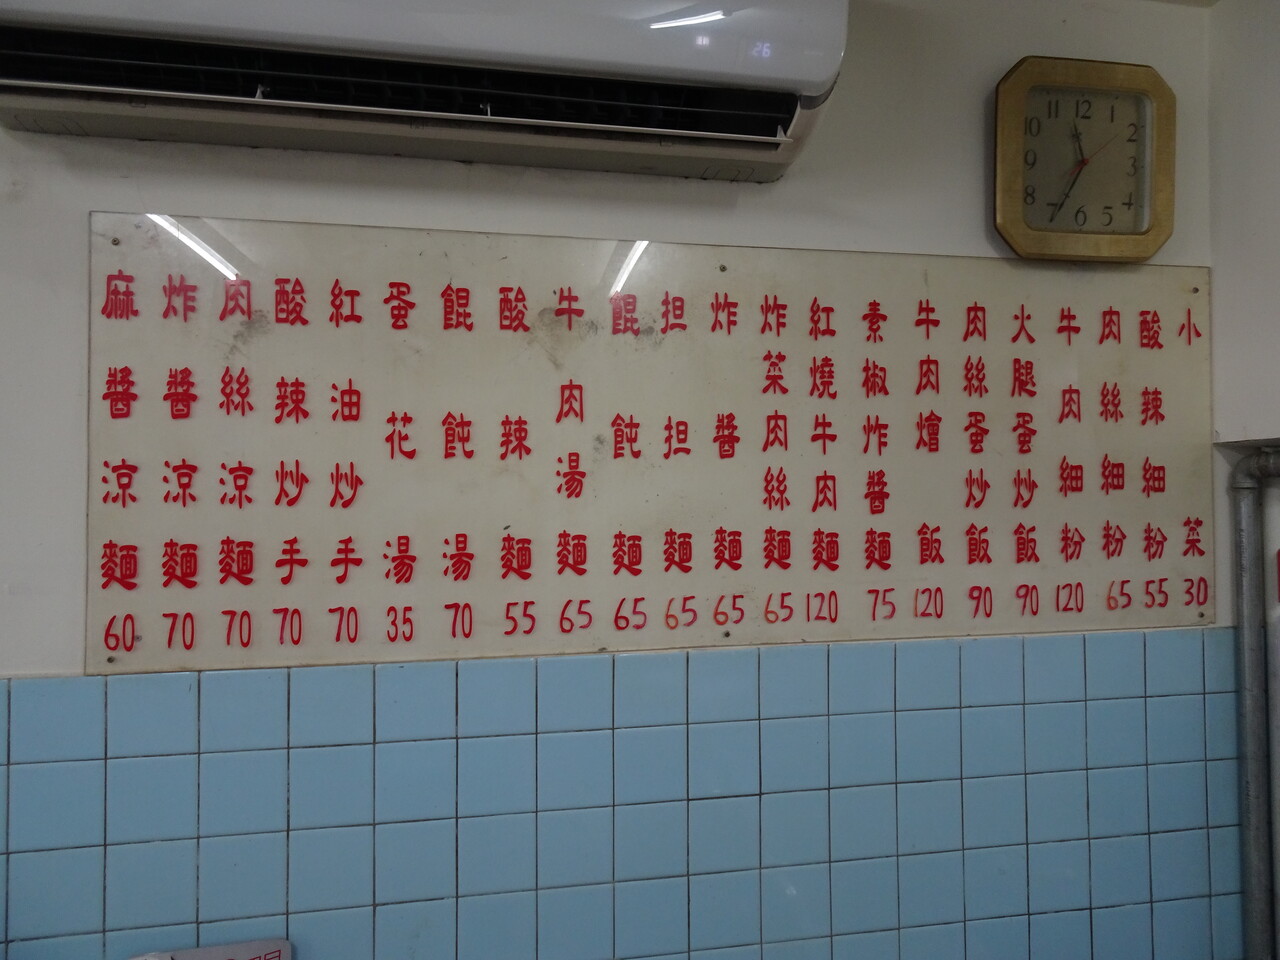 小菜 30
酸辣細粉 55
肉絲細粉 65
牛肉細粉 120
火腿蛋炒飯 90
肉絲蛋炒飯 90
牛肉燴飯 120
素椒炸醬麵 75
紅燒牛肉麵 120
炸菜肉絲麵 65
炸醬麵 65
担担麵 65
餛飩麵 65
牛肉湯麵 65
酸辣麵 55
餛飩湯 70
蛋花湯 35
紅油炒手 70
酸辣炒手 70
肉絲涼麵 70
炸醬涼麵 70
麻醬涼麵 60
26
12
1
2
3
4
5
6
7
8
9
10
11